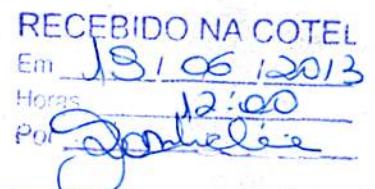 RECEBIDO NA COTEL
Em 19/06/2013
Horas 12:00
Por